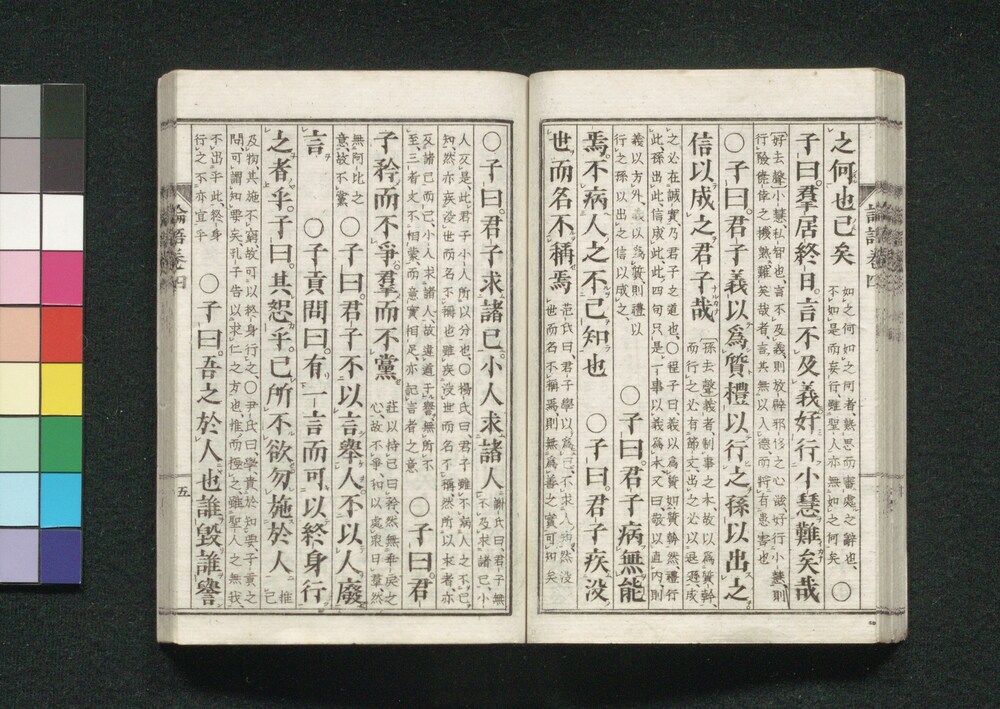 之何也已矣
如之何如之何者熟思而審處之辭也
不如是而妄行雖聖人亦無如之何矣
○
子曰羣居終日言不及義好行小慧難矣哉
好去聲○小慧私智也言不及義則放辟邪侈之心滋好行小慧則
行險僥倖之機熟難矣哉者言其無以入德而將有患害也
○子曰君子義以爲質禮以行之孫以出之
信以成之君子哉
孫去聲○義者制事之本故以爲質幹
而行之必有節文出之必以退遜成
之必在誠實乃君子之道也○程子曰義以爲質如質幹然禮行
此孫出此信成此此四句只是一事以義爲本又曰敬以直內則
義以方外義以爲質則禮以
行之孫以出之信以成之
○子曰君子病無能
焉不病人之不己知也
○子曰君子疾没
世而名不稱焉
范氏曰君子學以爲己不求人知然没
世而名不稱焉則無爲善之實可知矣
○子曰君子求諸己小人求諸人
謝氏曰君子無
不反求諸己小
人反是此君子小人所以分也○楊氏曰君子雖不病人之不己
知然亦疾没世而名不稱也雖疾没世而名不稱然所以求者亦
反諸己而已小人求諸人故違道干譽無所不
至三者文不相蒙而意實相足亦記言者之意
○子曰君
子矜而不爭羣而不黨
莊以持己曰矜然無乖戾之
心故不爭和以處衆曰羣然
無阿比之
意故不黨
○子曰君子不以言舉人不以人廢
言
○子貢問曰有一言而可以終身行
之者乎子曰其恕乎己所不欲勿施於人
推己
及物其施不窮故可以終身行之○尹氏曰學貴於知要子貢之
問可謂知要矣孔子告以求仁之方也推而極之雖聖人之無我
不出乎此終身
行之不亦宜乎
○子曰吾之於人也誰毀誰譽
論語卷四
五
論語卷四